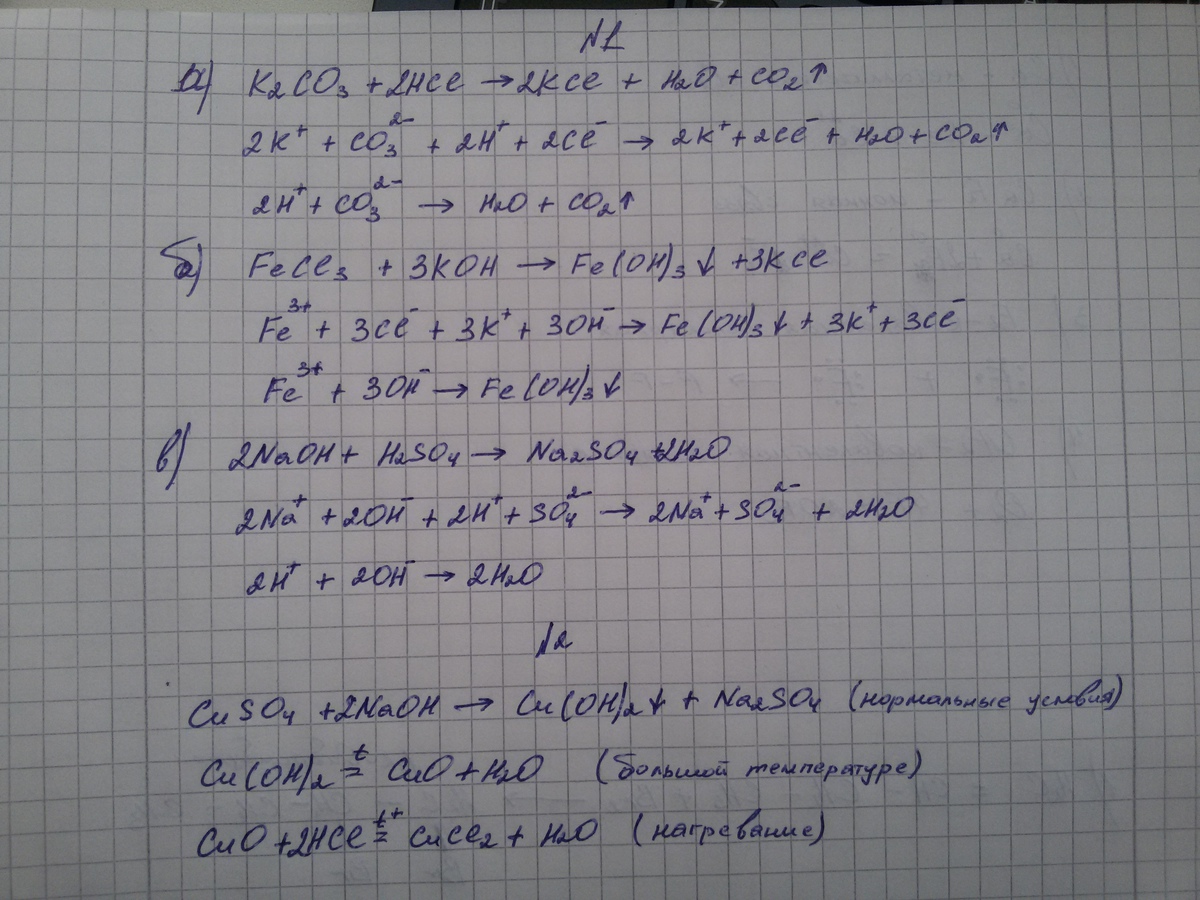 №1
а) K₂CO₃ + 2HCl → 2KCl + H₂O + CO₂↑
2K⁺ + CO₃²⁻ + 2H⁺ + 2Cl⁻ → 2K⁺ + 2Cl⁻ + H₂O + CO₂↑
2H⁺ + CO₃²⁻ → H₂O + CO₂↑
б) FeCl₃ + 3KOH → Fe(OH)₃↓ + 3KCl
Fe³⁺ + 3Cl⁻ + 3K⁺ + 3OH⁻ → Fe(OH)₃↓ + 3K⁺ + 3Cl⁻
Fe³⁺ + 3OH⁻ → Fe(OH)₃↓
в) 2NaOH + H₂SO₄ → Na₂SO₄ + 2H₂O
2Na⁺ + 2OH⁻ + 2H⁺ + SO₄²⁻ → 2Na⁺ + SO₄²⁻ + 2H₂O
2H⁺ + 2OH⁻ → 2H₂O
№2
CuSO₄ + 2NaOH → Cu(OH)₂↓ + Na₂SO₄ (нормальные условия)
Cu(OH)₂ =ᵗ CuO + H₂O (большой температуре)
CuO + 2HCl =ᵗ⁺ CuCl₂ + H₂O (нагревание)